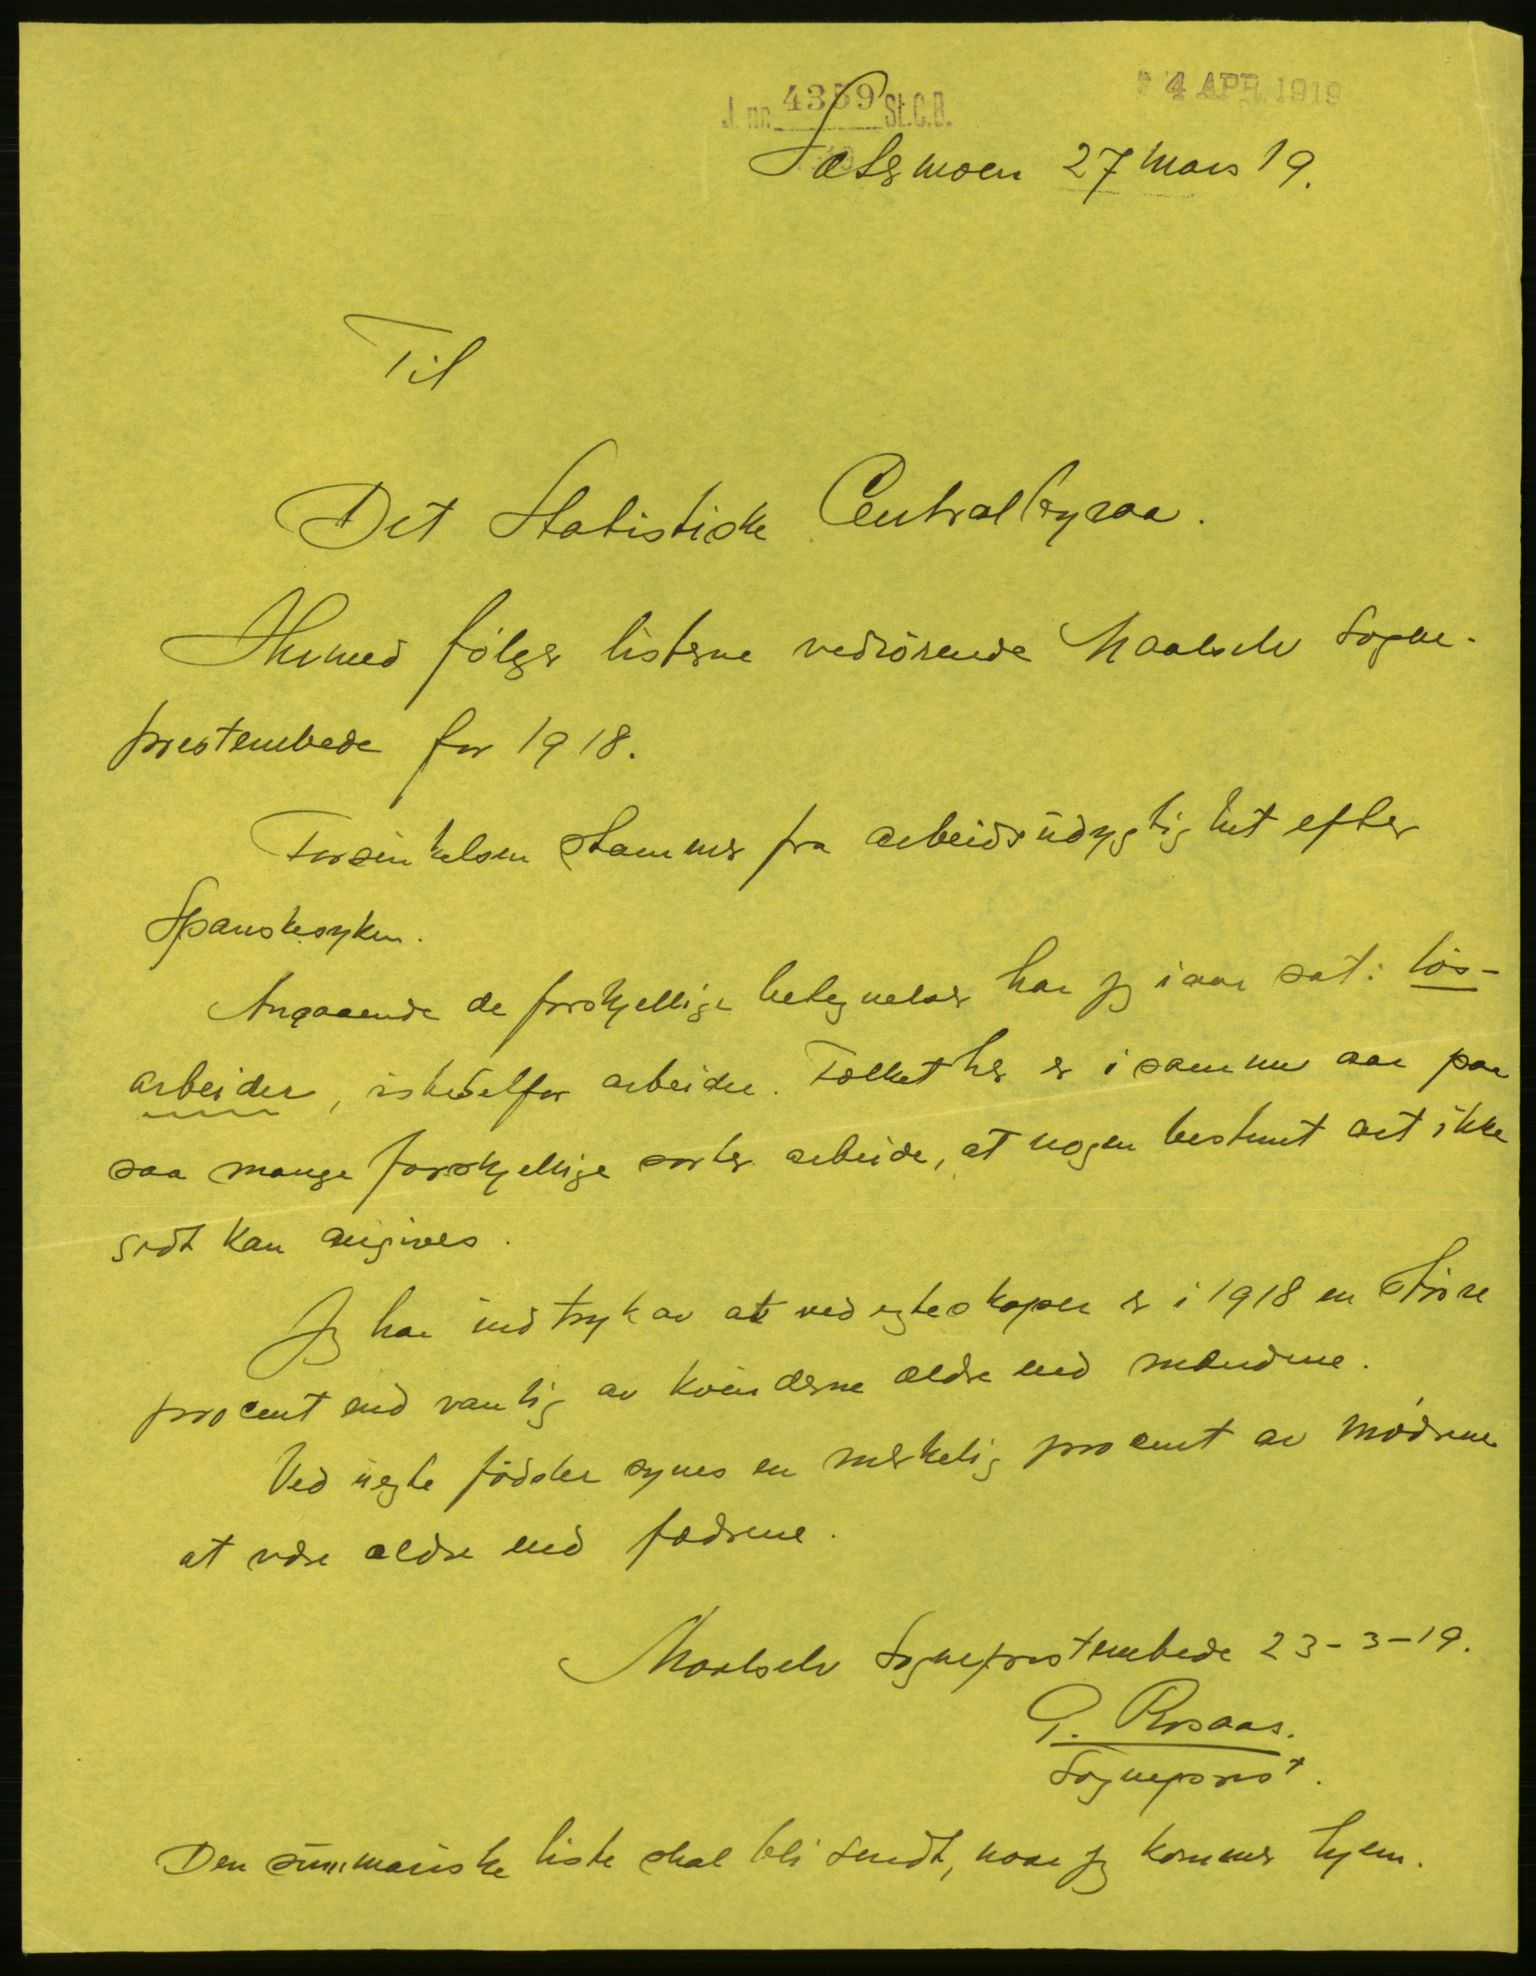 J. nr. 4359 St.C.B.
4 APR. 1919
Sætermoen 27 mars 19.
Til
Det Statistiske Centralbyraa.
Hermed følger listerne vedrørende Maalselv Sogne-
prestembede for 1918.
Forsinkelsen stammer fra arbeidsudygtighet efter
Spanskesyken.
Angaaende de forskjellige betegnelser har jeg iaar sat: løs-
arbeider, istedetfor arbeider. Folket her er i samme aar paa
saa mange forskjellige sorter arbeide, at nogen bestemt art ikke
godt kan angives.
Jeg har indtryk av at ved egteskaper er i 1918 en større
procent end vanlig av kvinderne ældre end mændene.
Ved uegte fødsler synes en merkelig procent av mødrene
at være ældre end fædrene.
Maalselv Sogneprestembede 23-3-19.
G. Rosaas.
Sogneprest.
Den summariske liste skal bli sendt, naar jeg kommer hjem.